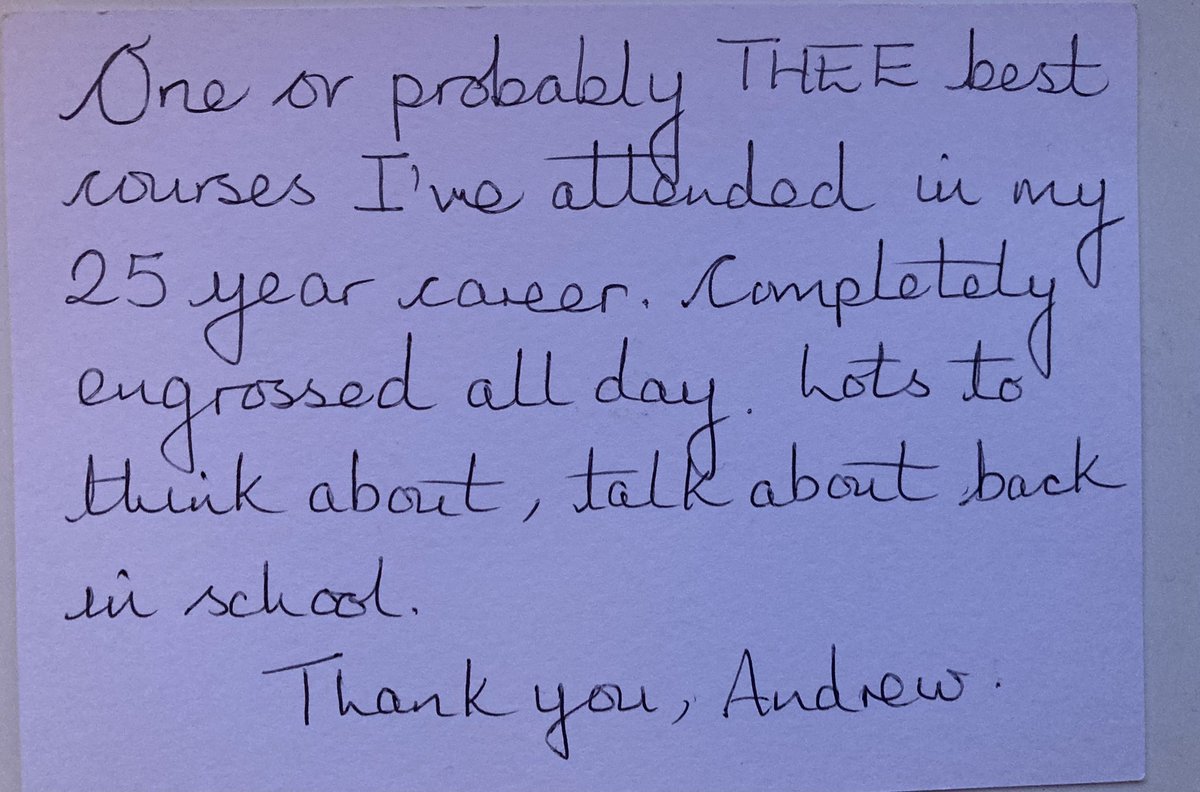 One or probably THEE best
courses I've attended in my
25 year career. Completely
engrossed all day. Lots to
think about, talk about back
in school.
Thank you, Andrew.